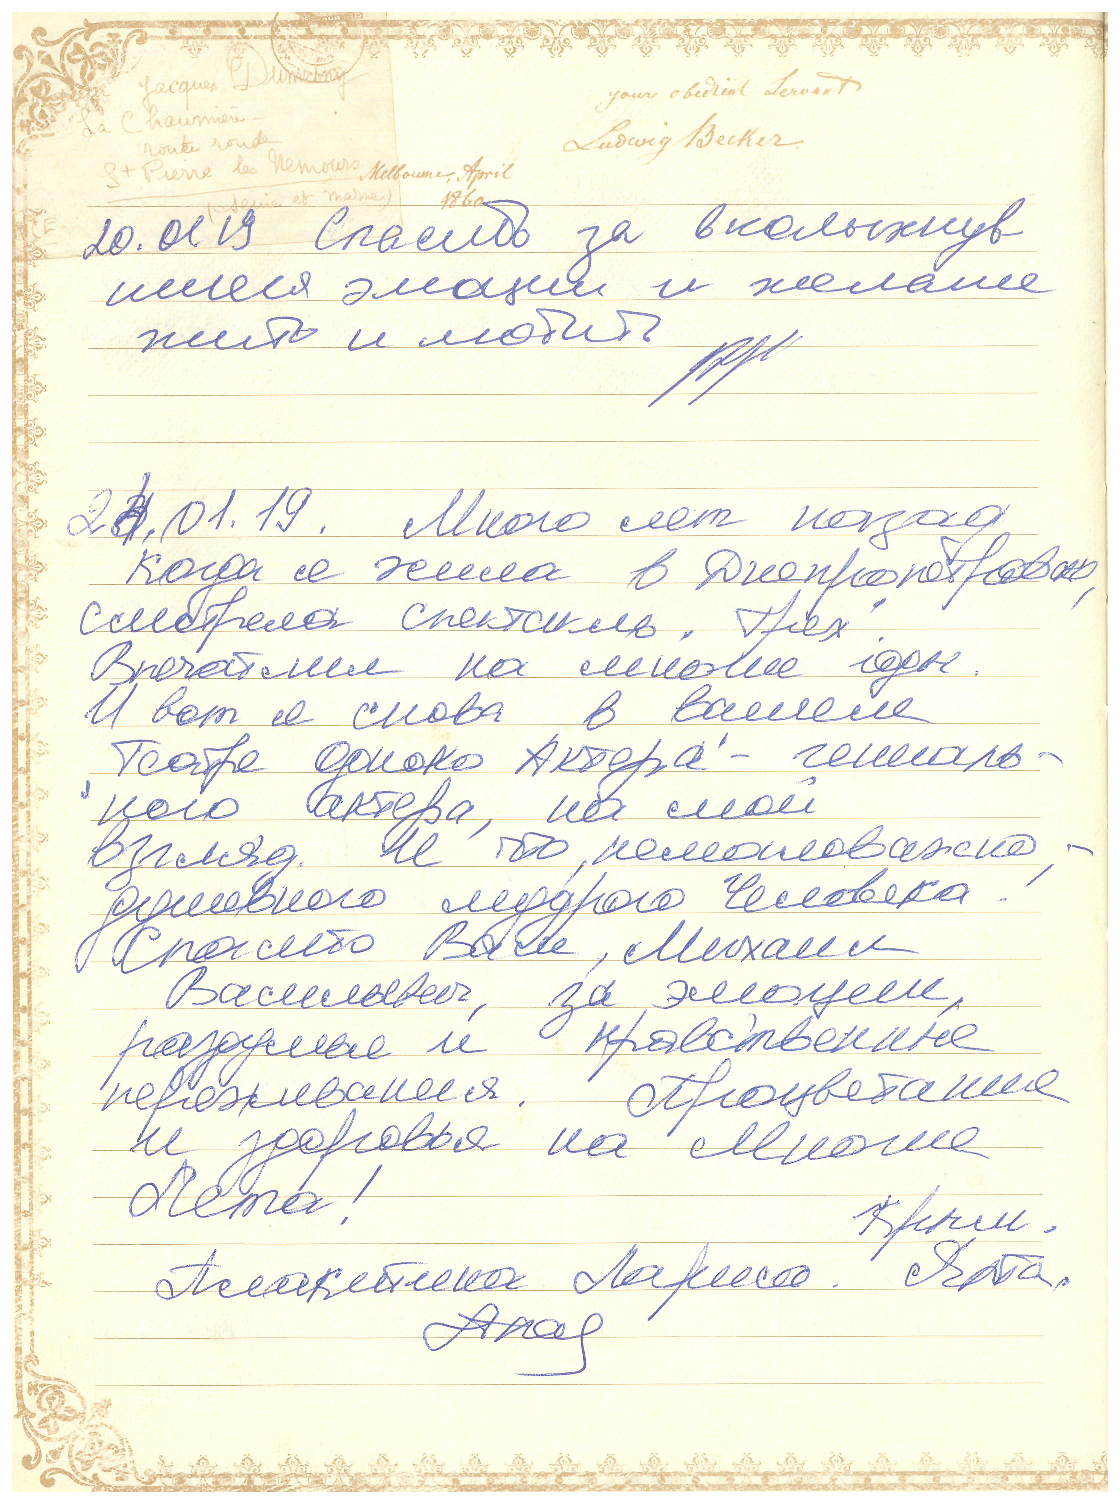 Jacques Dumesny
La Chaumière
route ronde
St Pierre les Nemours
(Seine et marne)
your obedient Servant
Ludwig Becker
Melbourne, April
1860
20.01.19 Спасибо за вколыхнув
шиеся эмоции и желание
жить и любить
21.01.19. Много лет назад
когда я жила в Днепропетровске,
смотрела спектакль "Грех".
Впечатлил на многие годы.
И вот я снова в вашем
"Театре одного Актера" - гениаль-
ного актера, на мой
взгляд. И что, немаловажно, -
душевного мудрого Человека!
Спасибо Вам, Михаил
Васильевич, за эмоции,
раздумья и нравственные
переживания. Процветания
и здоровья на Многие
Лета!
Крым.
Лариса. Ялта.